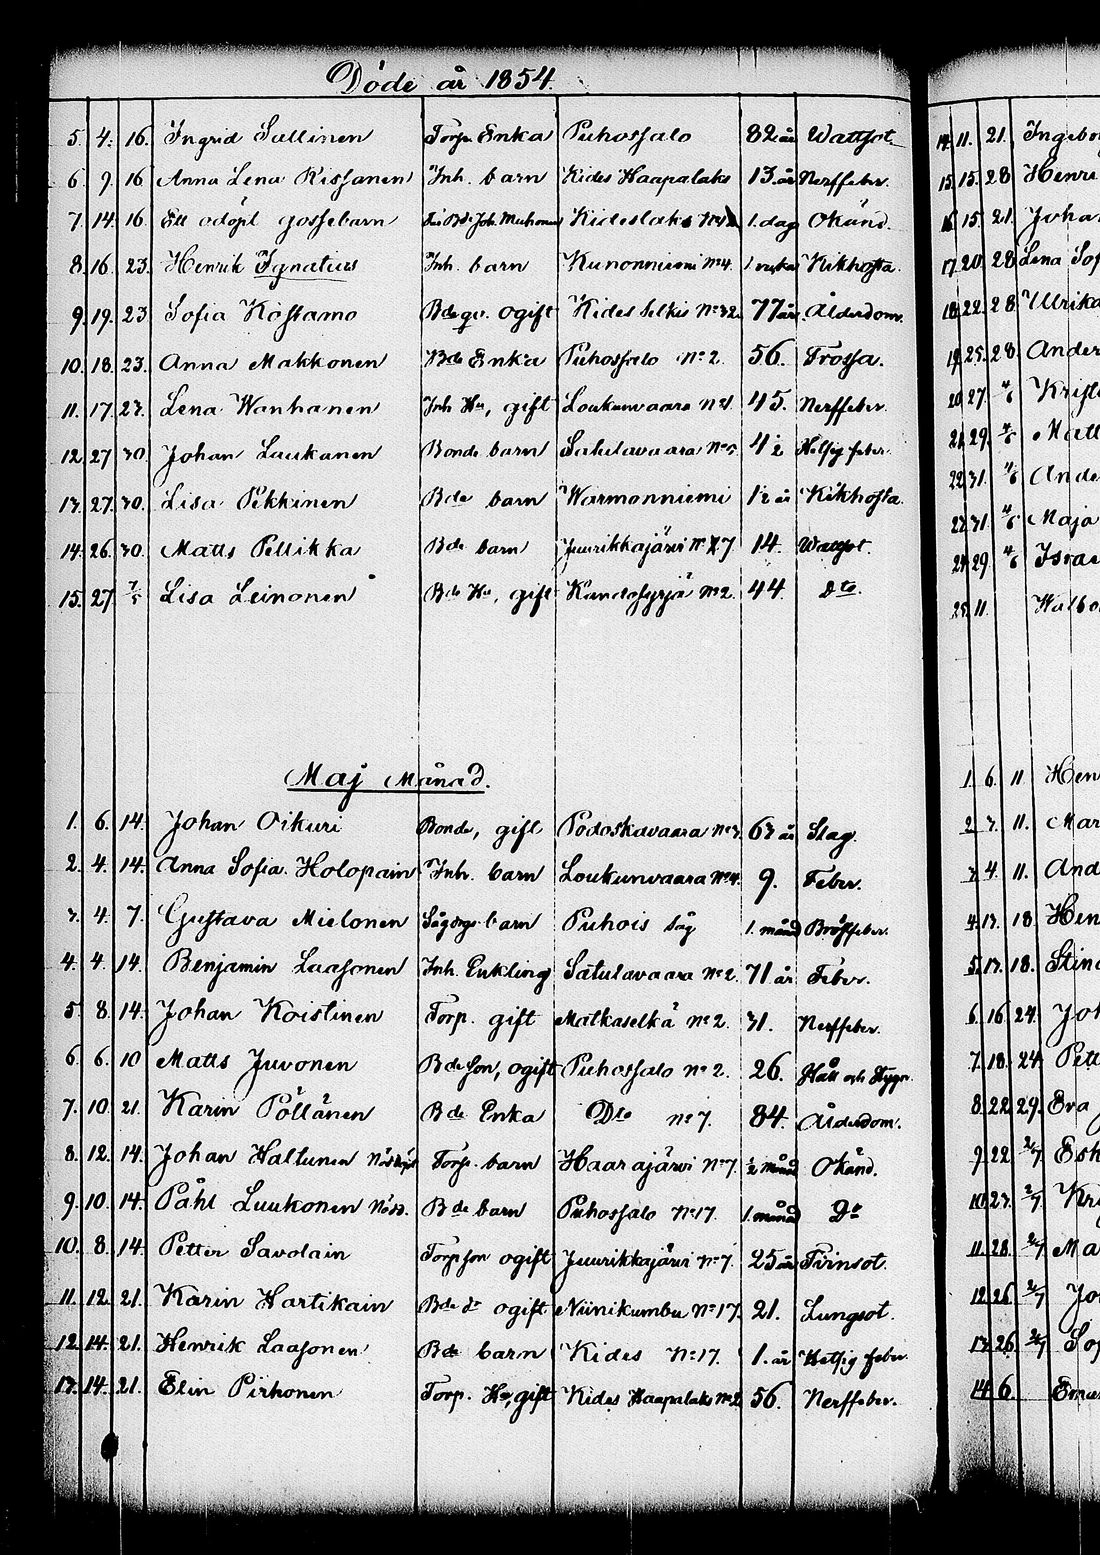 Döde år 1854.
5. 4. 16. Ingrid Sallinen Torp. Enka Puhossalo 82 år Wattsot.
6. 9. 16 Anna Lena Rissanen Inh. barn Kides Haapalaks 13 år Nerffeber.
7. 14. 16 Ett odöpt gossebarn Kideslaks 1. dag Okänd.
8. 16. 23. Henrik Ignatius Inh. barn Kunonniemi No 4. Kikhosta.
9. 19. 23 Sofia Kostamo ogift Kides Selkis No 32. 77 år. Ålderdom.
10. 18. 23. Anna Makkonen Bde Enka Puhossalo No 2. 56. Frossa.
11. 17. 23. Lena Wanhanen Inh Hu, gift Loukunvaara 45. Nerffeber
12. 27 30. Johan Laukanen Bonde barn Satulavaara No 5 4½ Hetsig feber.
13. 27. 30. Lisa Pekkinen Bde barn Warmonniemi 1½ år Kikhosta.
14. 26. 30. Matts Pellikka Bde barn Juurikkajärvi No 7 14. Wattsot.
15. 27 7/5 Lisa Leinonen Bde Hu, gift Kundosyrjä No 2. 44. Dto.
Maj Månad.
1. 6. 14. Johan Oikuri Bonde, gift Podoskavaara No 3. 63 år Slag.
2. 4. 14. Anna Sofia Holopain Inh. barn Loukunvaara No 4. 9. Feber.
3. 4. 7. Gustava Mielonen barn Puhois Såg 1. månd Bröstfeber.
4. 4. 14. Benjamin Laasonen Inh. Enkling Satulavaara No 2. 71 år Feber.
5. 8. 14. Johan Koistinen Torp. gift Matkaselkä No 2. 31. Nerffeber.
6. 6. 10 Matts Juvonen Bde son, ogift Puhossalo No 2. 26. Håll och Styng.
7. 10. 21. Karin Pöllänen Bde Enka Dto No 7. 84. Ålderdom.
8. 12. 14. Johan Haltunen Nöddöpt Torp. barn Haarajärvi No 7. ½ månd Okänd.
9. 10. 14. Påhl Luukonen Nödd. Bde barn Puhossalo No 17. 1. månad Do
10. 8. 14. Petter Savolain Torp son ogift Juurikkajärvi No 7. 25 år Tvinsot.
11. 12. 21. Karin Hartikain Bde dr ogift Niinikumbu No 17. 21. Lungsot.
12. 14. 21. Henrik Laasonen Bde barn Kides No 17. 1. år Hetsig feber.
13. 14. 21. Elin Pirhonen Torp. Hu, gift Kides Haapalaks No 2 56. Nerffeber.
14. 11. 21. Ingebor
15. 15. 28 Henri
16. 15. 21. Joha
17. 20. 28 Lena Sof
18. 22. 28 Ulrika
19. 25. 28. Ander
20. 27. 4/6 Krist
21. 29. 4/6 Matt
22. 31. 4/6 Ande
23. 31. 4/6 Maja
24. 29 4/6 Israe
25. 11. Walbo
1. 6. 11 Hen
2. 3. 11. Mar
3. 4. 11. And
4. 13. 18. Hen
5. 13. 18. Stina
6. 16 24. Joh
7. 18. 24. Pett
8. 22. 29. Eva
9. 22 2/7 Esk
10. 23. 2/7 Kri
11. 28. 2/7 Ma
12. 26. 2/7 Jo
13. 26. 2/7 Sof
14. 6.